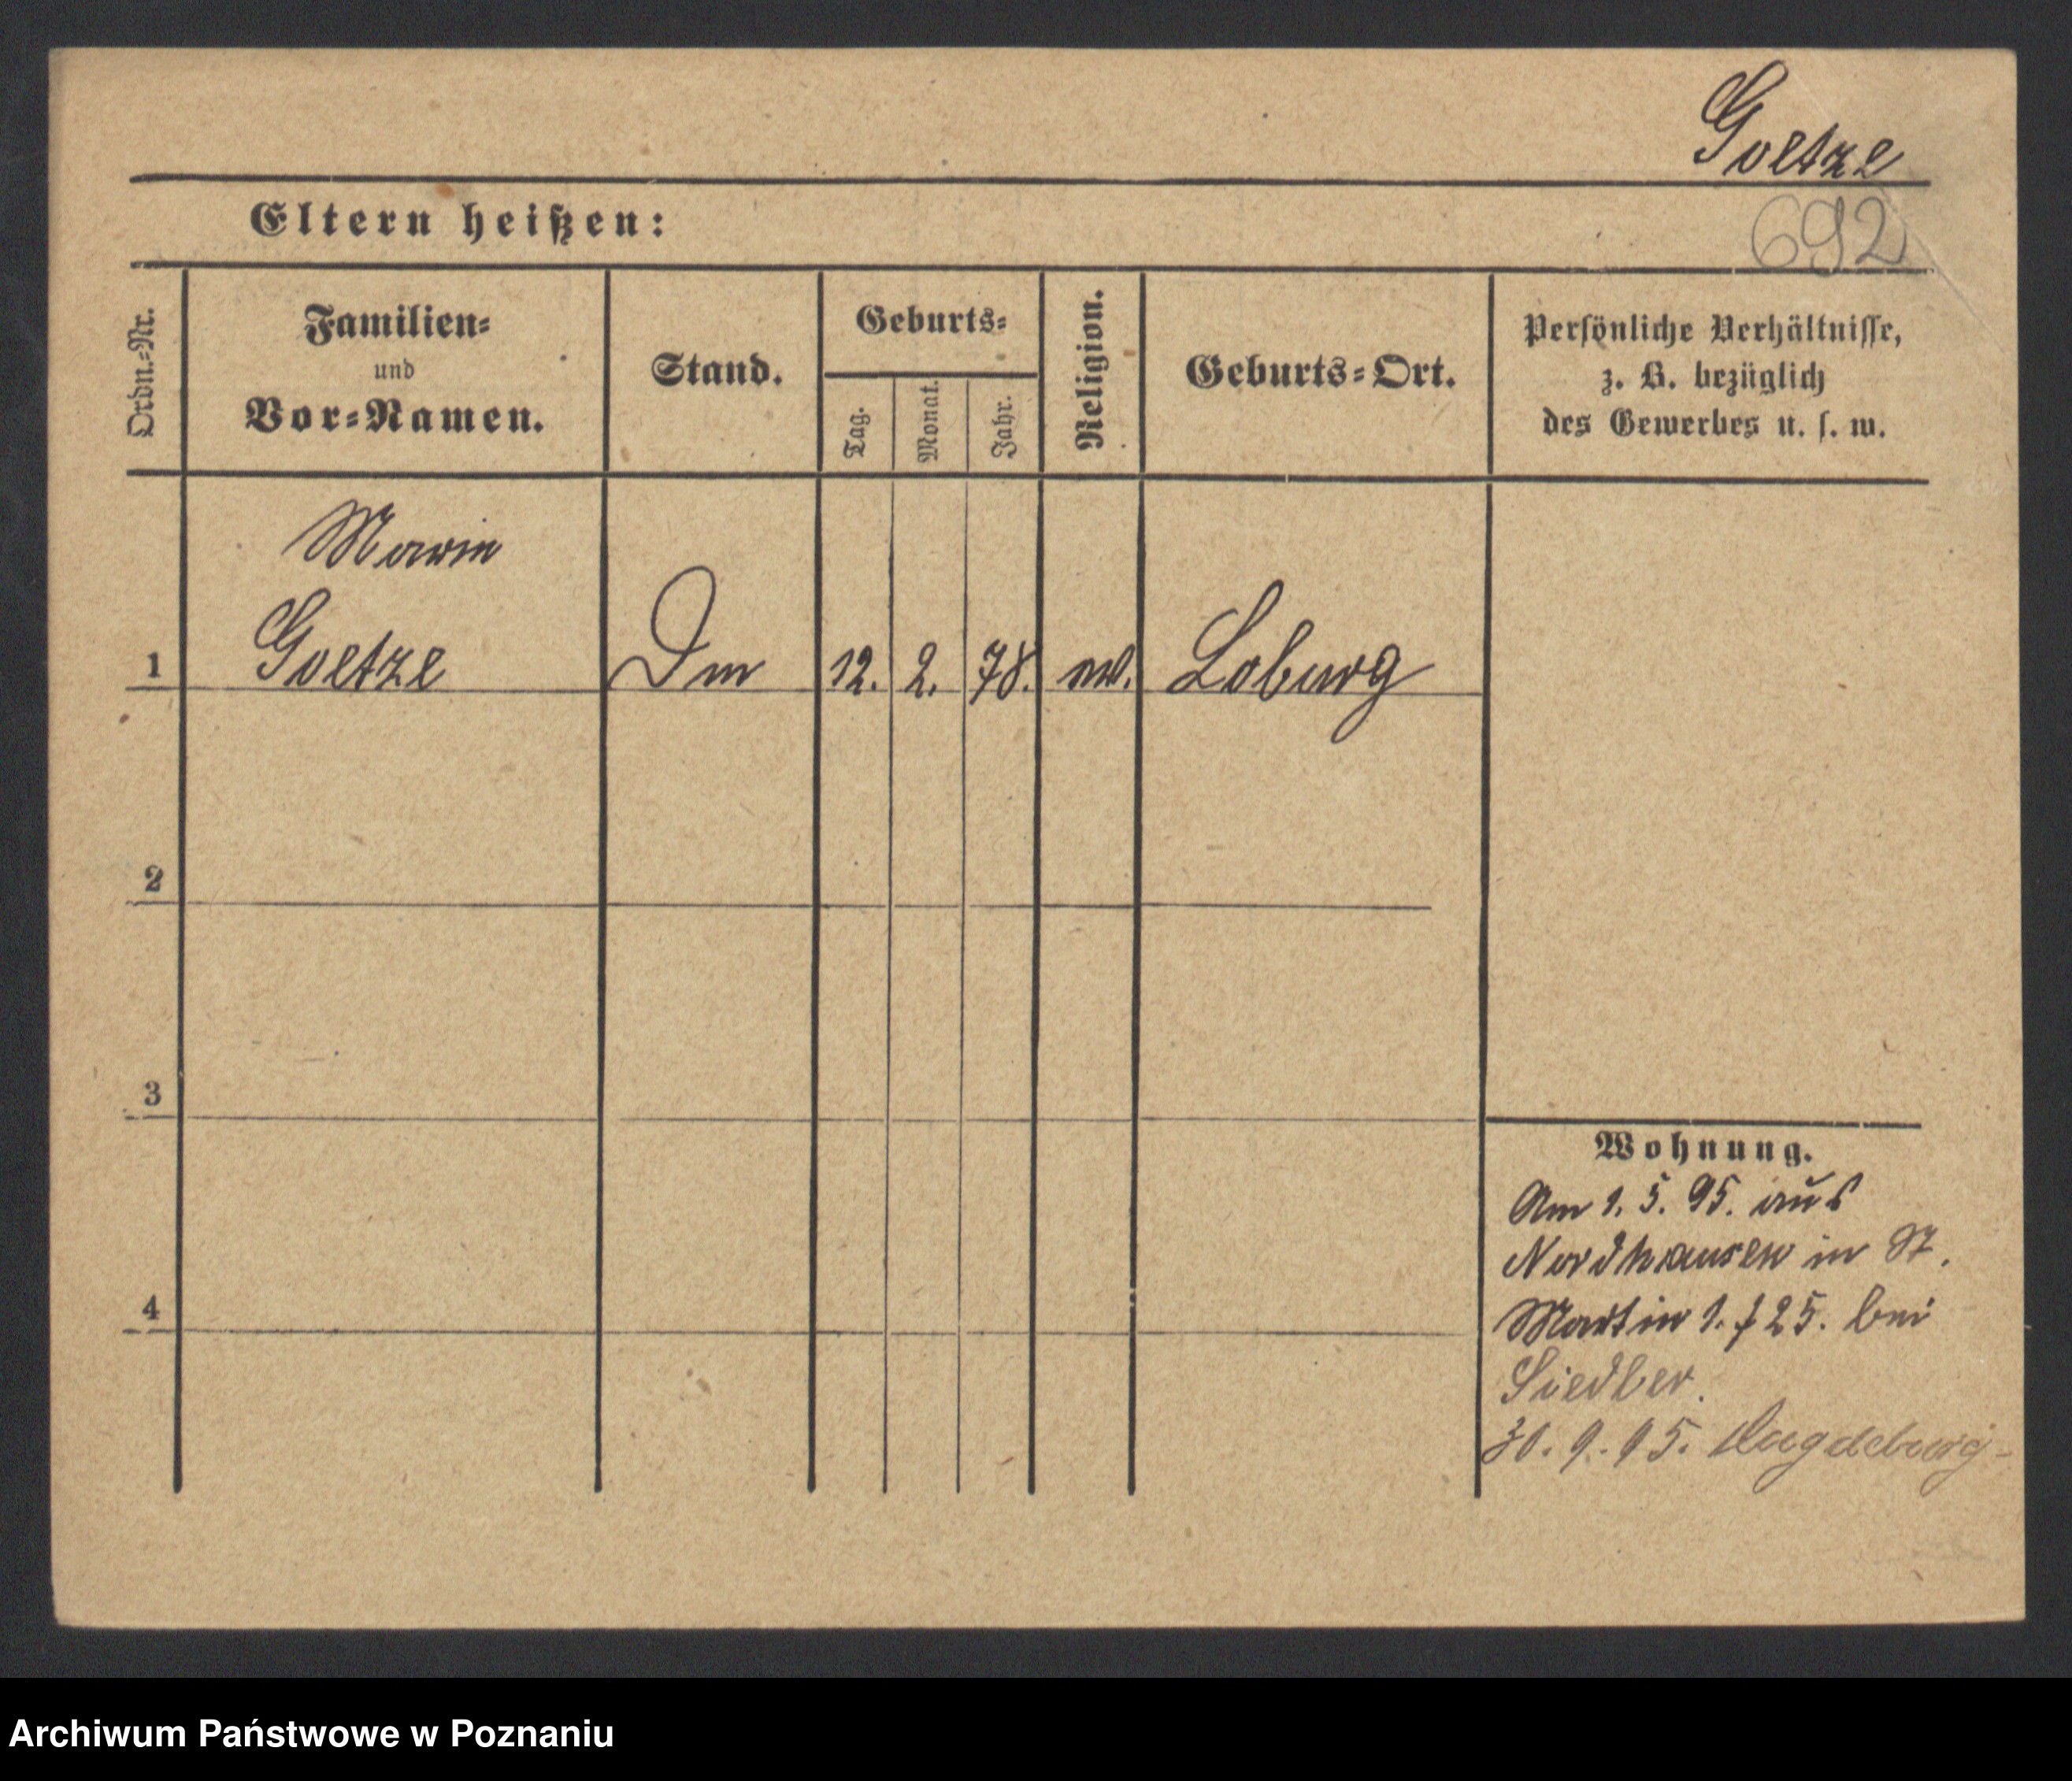 Goetze
Eltern heißen:
692
Ordn.-Nr.
Familien-
und
Vor-Namen.
Stand.
Geburts-
Tag.
Monat.
Jahr.
Religion.
Geburts-Ort.
Persönliche Verhältnisse,
z. B. bezüglich
des Gewerbes u. s. w.
Marie
1 Goetze 12. 2. 78. ev. Loburg
2
3
4
Wohnung.
Am 1. 5. 95. aus
Nordhausen in St.
Martin 25. bei
Siedler.
30. 9. 95. Magdeburg
Archiwum Państwowe w Poznaniu